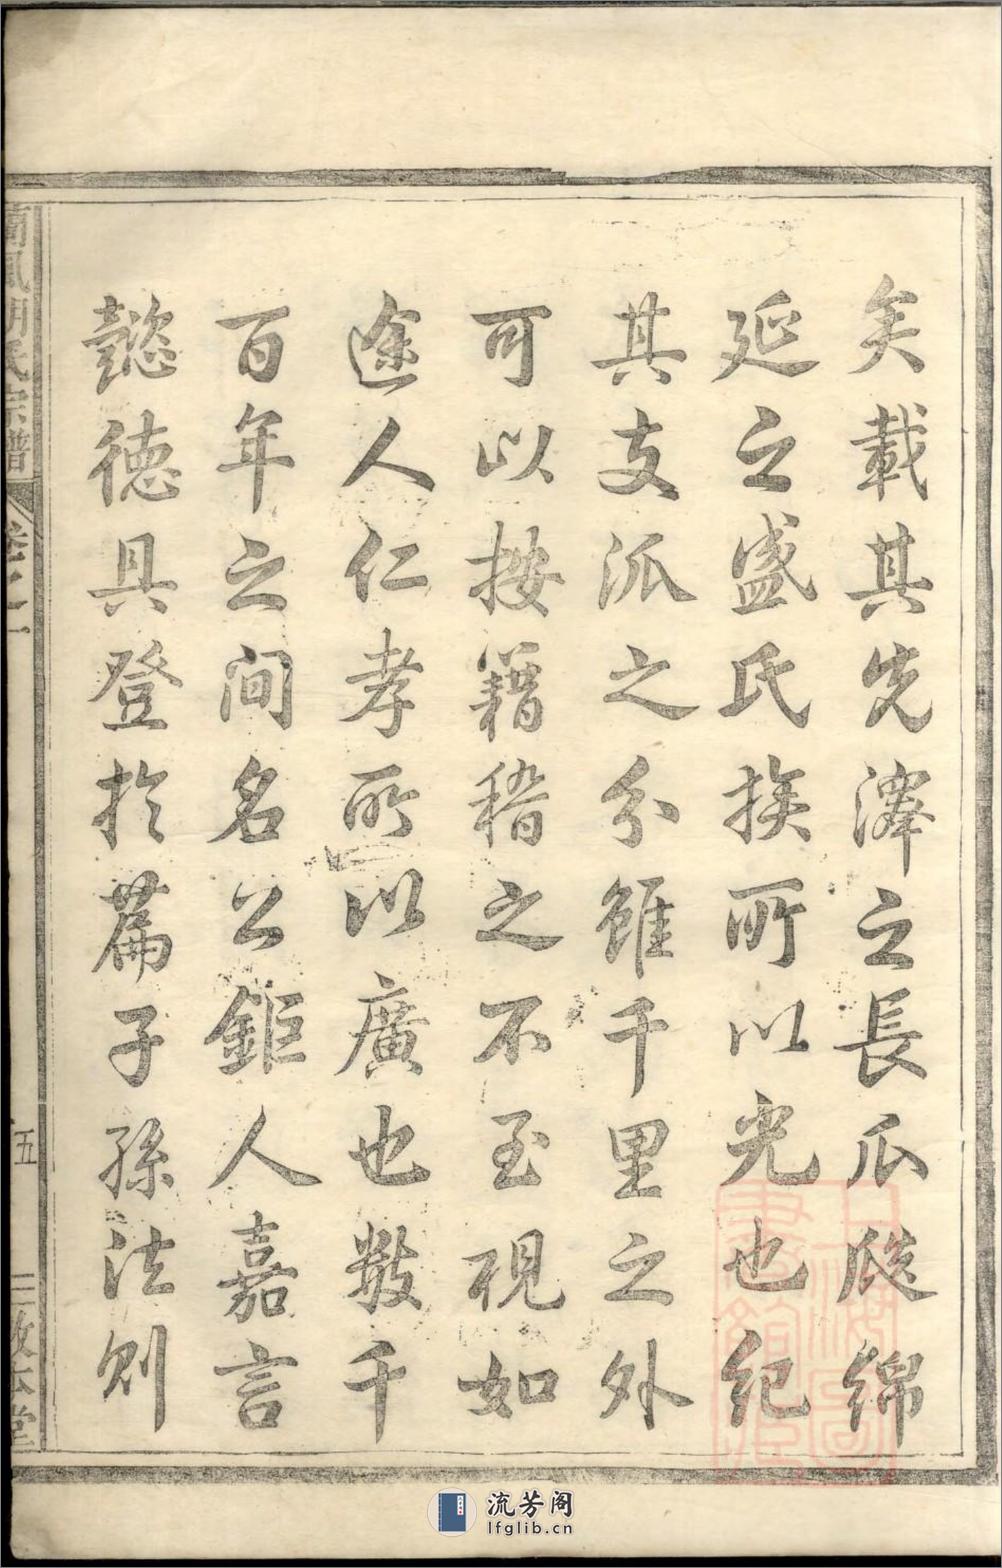 矣載其先澤之長瓜瓞綿
延之盛氏族所以光也紀
其支派之分雖千里之外
可以按籍稽之不至視如
途人仁孝所以廣也數千
百年之間名公鉅人嘉言
懿德具登於篇子孫法則
氏宗譜
卷之二
五
三
堂
流芳阁
lfglib.cn